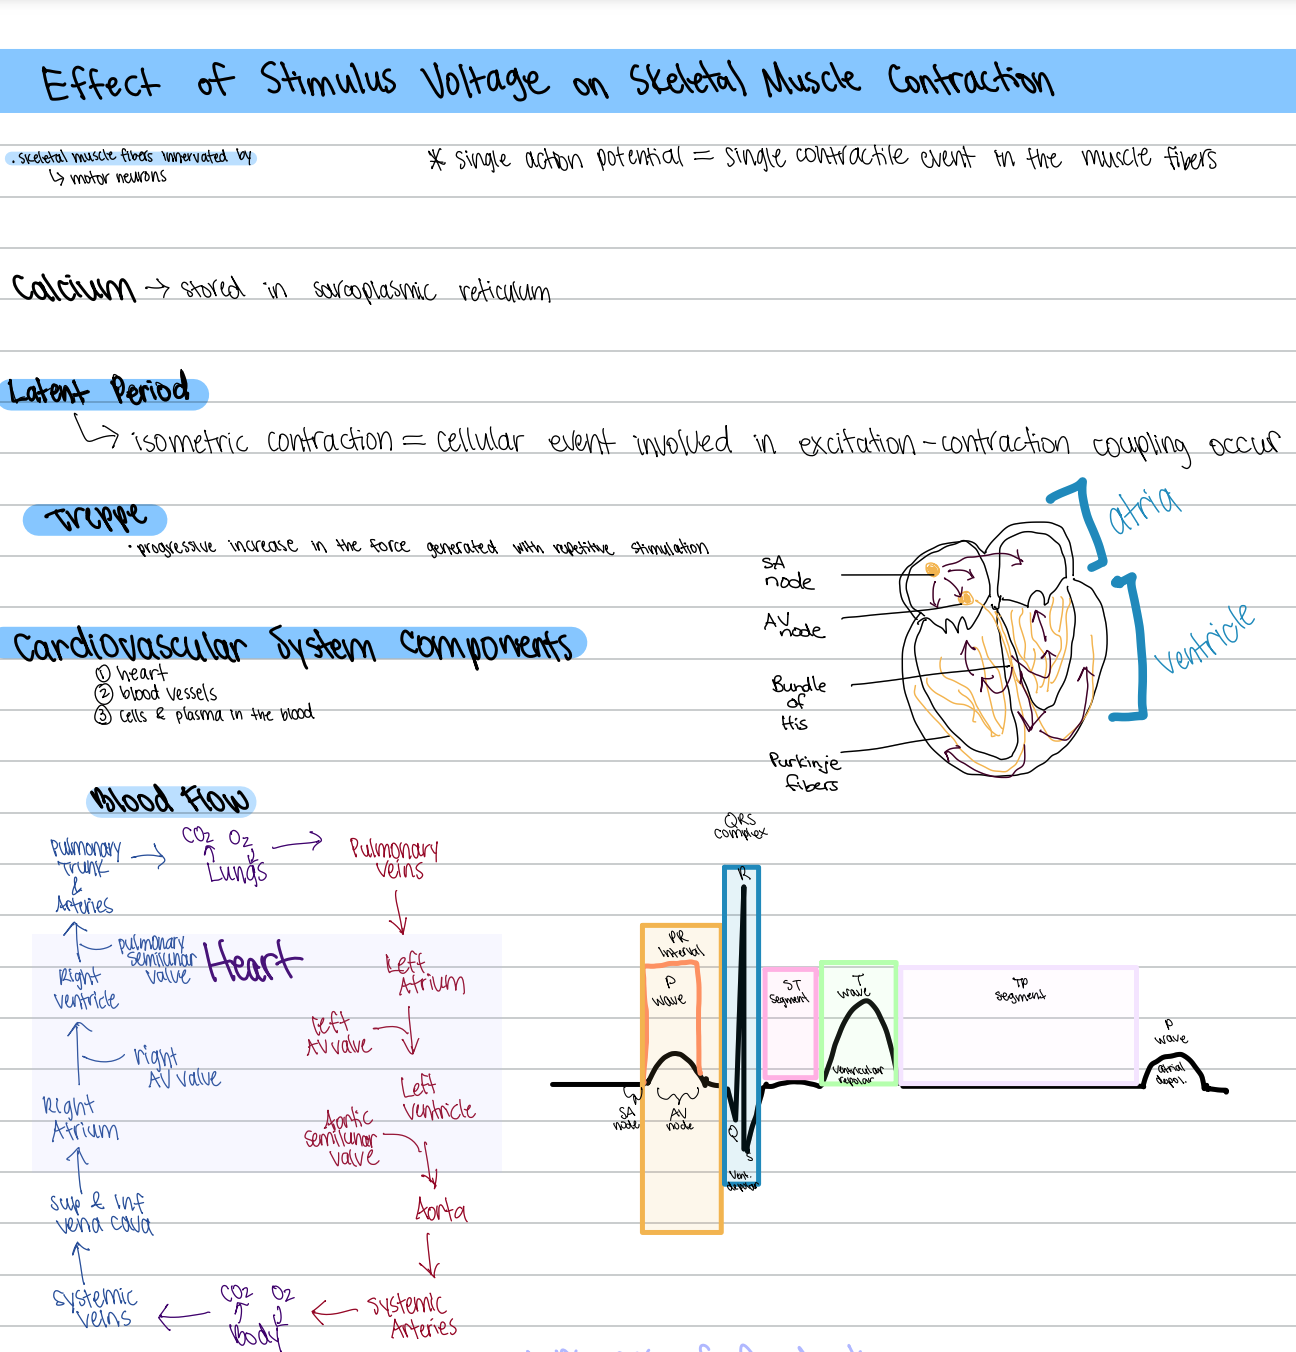 Effect of Stimulus Voltage on Skeletal Muscle Contraction
• skeletal muscle fibers innervated by
↳ motor neurons
* single action potential = single contractile event in the muscle fibers
Calcium → stored in sarcoplasmic reticulum
Latent Period
↳ isometric contraction = cellular event involved in excitation-contraction coupling occur
Treppe
• progressive increase in the force generated with repetitive stimulation
Cardiovascular System Components
① heart
② blood vessels
③ cells & plasma in the blood
SA
node
AV
node
Bundle
of
His
Purkinje
fibers
atria
ventricle
Blood Flow
Pulmonary
Trunk
&
Arteries
CO2 O2
Lungs
Pulmonary
Veins
pulmonary
semilunar
valve
Heart
Right
Ventricle
Left
Atrium
left
AV valve
right
AV valve
Left
Ventricle
Right
Atrium
Aortic
semilunar
valve
sup & inf
vena cava
Aorta
systemic
veins
CO2 O2
Body
Systemic
Arteries
QRS
complex
R
PR
interval
P
wave
ST
segment
T
wave
TP
segment
P
wave
ventricular
repolar
atrial
depol.
SA
node
AV
node
Q
S
Vent.
depolar